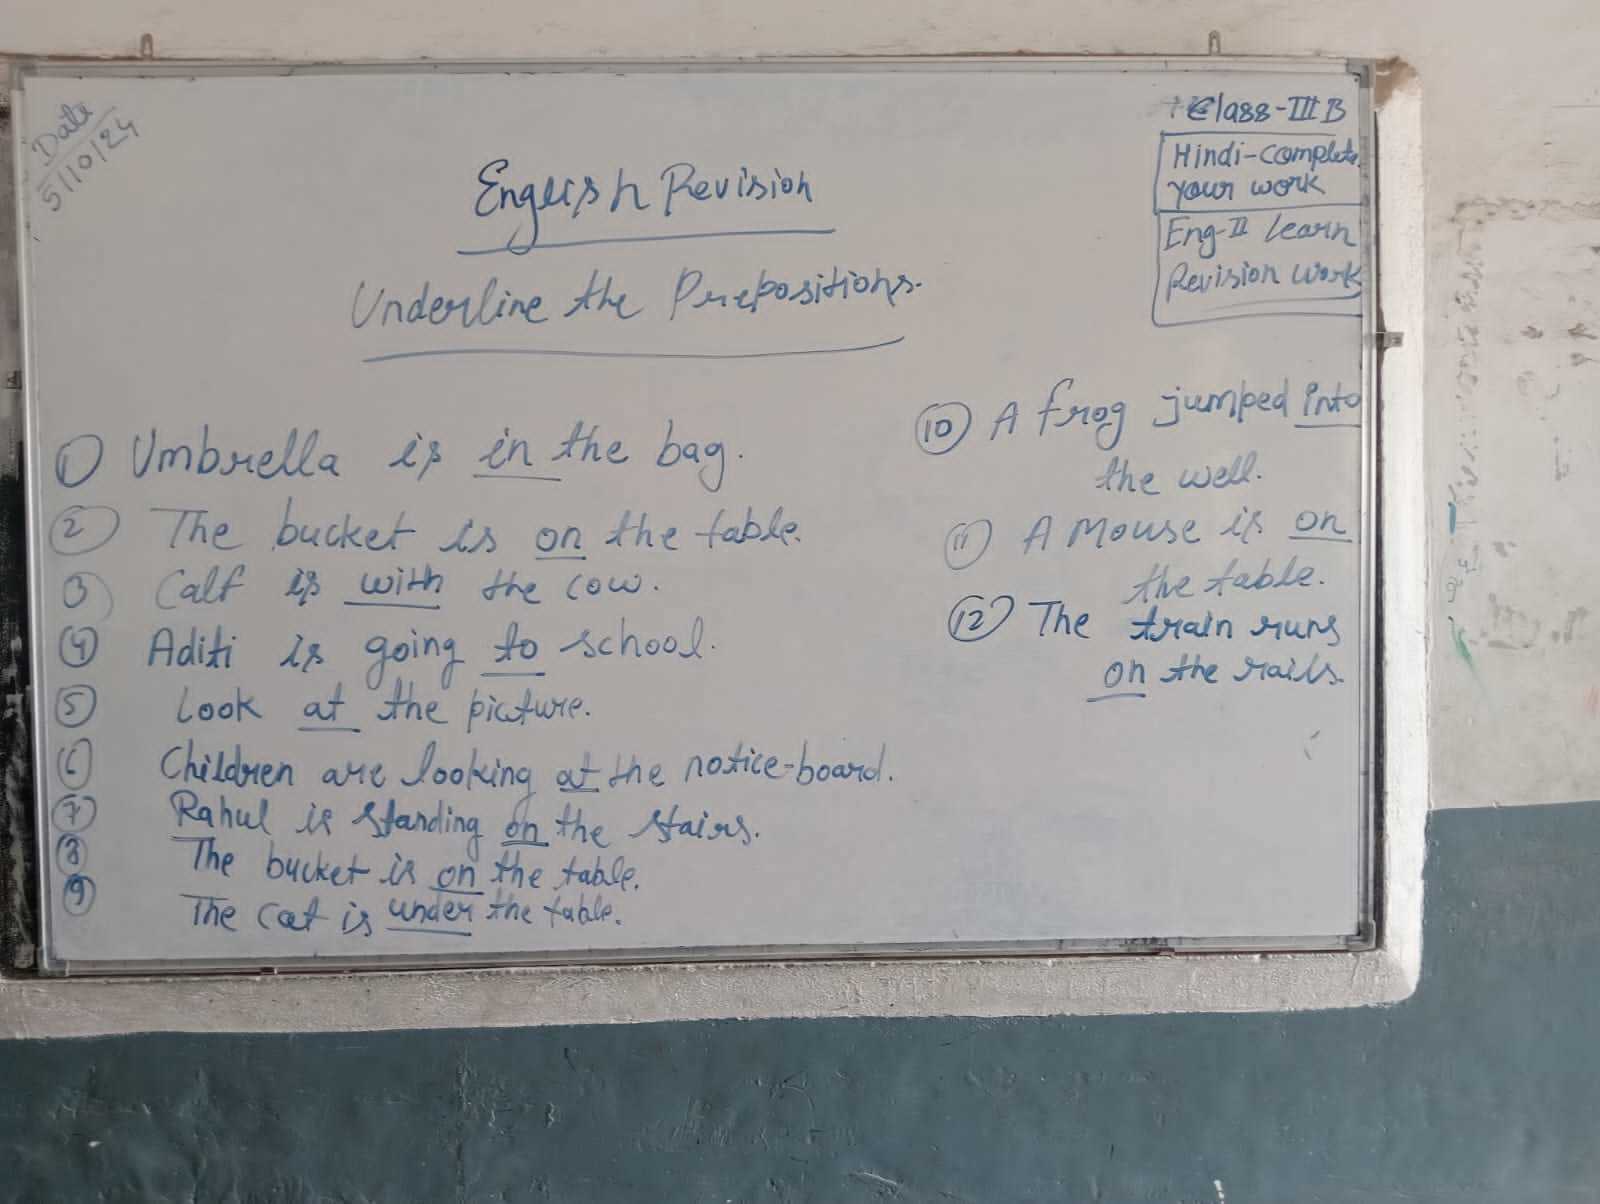 Date
5/10/24
Class-III B
Hindi-complete
your work
Eng-II learn
Revision work
English Revision
Underline the Prepositions.
1 Umbrella is in the bag.
2 The bucket is on the table.
3 Calf is with the cow.
4 Aditi is going to school.
5 Look at the picture.
6 Children are looking at the notice-board.
7 Rahul is standing on the stairs.
8 The bucket is on the table.
9 The cat is under the table.
10 A frog jumped into
the well.
11 A Mouse is on
the table.
12 The train runs
on the rails.